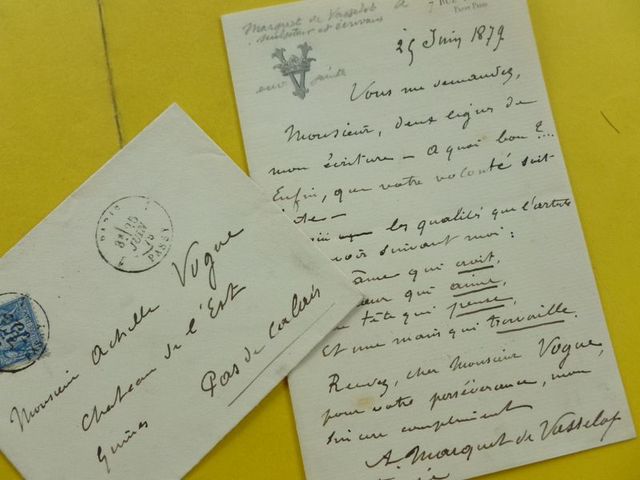 Marquet de Vasselot
sculpteur et écrivain
7 RUE
25 Juin 1879
Vous me demandez,
Monsieur, deux lignes de
mon écriture – A quoi bon ?...
Enfin, que votre volonté soit
les qualités que l'artiste
suivant moi :
âme qui croit,
qui aime,
tête qui pense,
Et une main qui travaille.
Recevez, cher Monsieur Vogue,
pour votre persévérance, mon
sincère compliment
A. Marquet de Vasselot
PARIS
JUIN
PASSY
Monsieur Achille Vogue
Chateau de l'Est
Guines
Pas de Calais